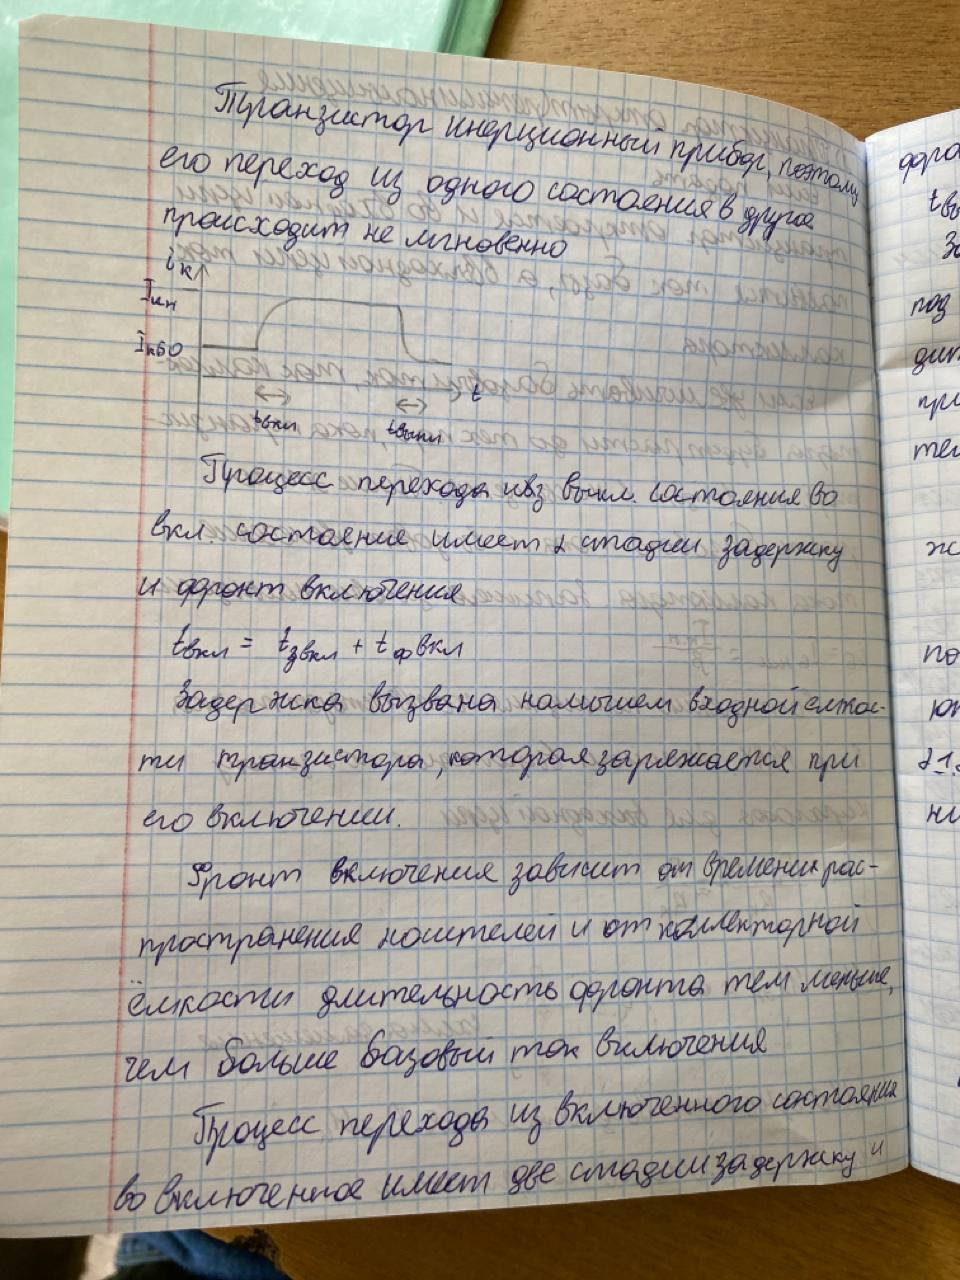 Транзистор инерционный прибор, поэтому
его переход из одного состояния в другое
происходит не мгновенно
iк
Iкн
Iкбо
t
tвкл
tвыкл
Процесс перехода из выкл. состояния во
вкл. состояние имеет 2 стадии задержку
и фронт включения
tвкл = tзвкл + tфвкл
Задержка вызвана наличием входной ёмкос-
ти транзистора, которая заряжается при
его включении.
Фронт включения зависит от времени рас-
пространения носителей и от коллекторной
ёмкости длительность фронта тем меньше,
чем больше базовый ток включения
Процесс перехода из включенного состояния
во включенное имеет две стадии задержку и
фро
tвы
За
под
дит
при
тел
ж
по
юн
21.
ни